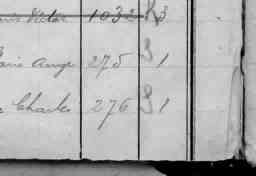 Victor 1032 R3
Ange 275 S 1
Charles 276 S 1